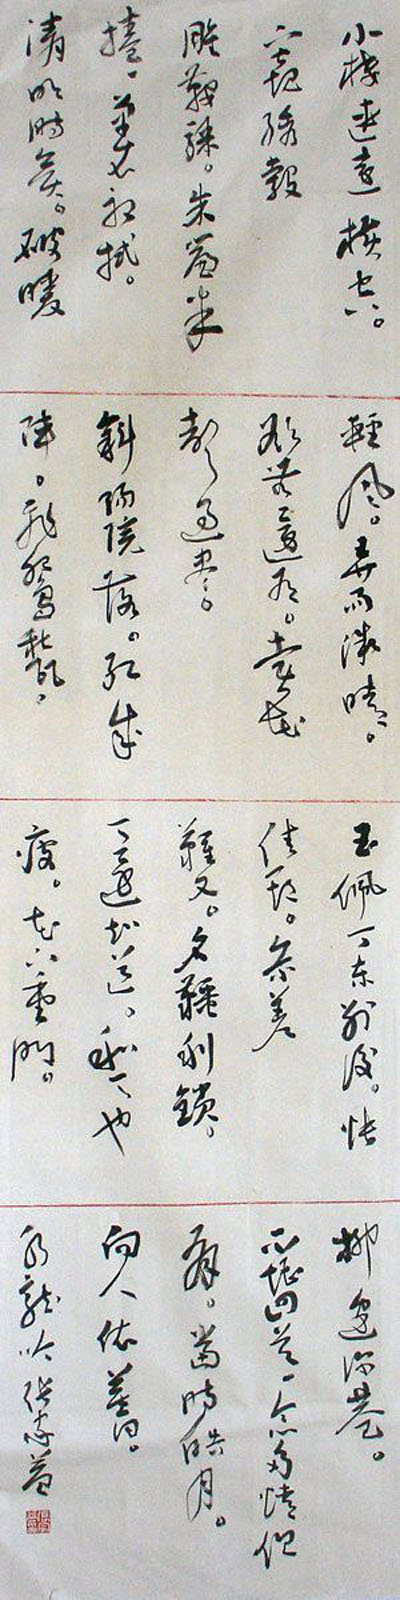 小樓連遠橫空。
下窺繡轂
雕鞍驟。朱簾半
捲。單衣初試。
清明時候。破暖
輕風。弄雨微晴。
欲無還有。賣花
聲過盡。
斜陽院落。紅成
陣。飛鴛甃。
玉佩丁東別後。悵
佳期。參差
難又。名韁利鎖。
天還知道。和天也
瘦。花下重門。
柳邊深巷。
不堪回首。念多情但
有。當時皓月。
向人依舊。
水龍吟 張